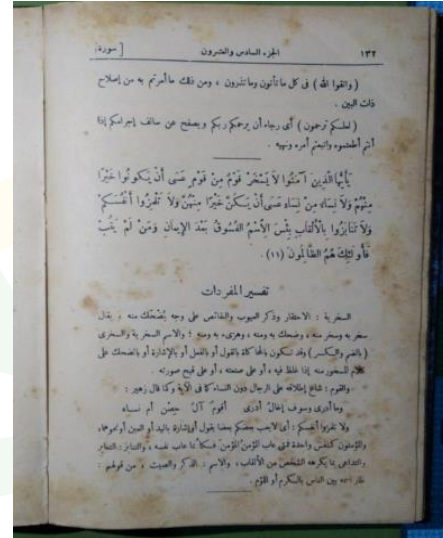 ١٣٢ الجزء السادس والعشرون [ سورة
( واتقوا الله ) فى كل ما تأتون وما تذرون ، ومن ذلك ما أمرتم به من إصلاح
ذات البين .
( لعلكم ترحمون ) أى رجاء أن يرحمكم ربكم ويصفح عن سالف إجرامكم إذا
أنتم أطعتموه واتبعتم أمره ونهيه .
يَأَيُّهَا الَّذِينَ آمَنُوا لاَ يَسْخَرْ قَوْمٌ مِنْ قَوْمٍ عَسَى أَنْ يَكُونُوا خَيْرًا
مِنْهُمْ وَلاَ نِسَاءٌ مِنْ نِسَاءٍ عَسَى أَنْ يَكُنَّ خَيْرًا مِنْهُنَّ وَلاَ تَلْمِزُوا أَنْفُسَكُمْ
وَلاَ تَنَابَزُوا بِالْأَلْقَابِ بِئْسَ الاِسْمُ الْفُسُوقُ بَعْدَ الْإِيمَانِ وَمَنْ لَمْ يَتُبْ
فَأُولَئِكَ هُمُ الظَّالِمُونَ (١١) .
تفسير المفردات
السخرية : الاحتقار وذكر العيوب والنقائص على وجه يُضحَك منه ، يقال
سخر به وسخر منه ، وضحك به ومنه ، وهزىء به ومنه ؛ والاسم السخرية والسخرى
( بالضم والكسر ) وقد تكون بالمحاكاة بالقول أو بالفعل أو بالإشارة أو بالضحك على
كلام المسخور منه إذا غلط فيه ، أو على صنعته ، أو على قبح صورته .
والقوم : شاع إطلاقه على الرجال دون النساء كما فى الآية وكما قال زهير :
وما أدرى وسوف إخالُ أدرى أقومٌ آلُ حِصْنٍ أم نساء
ولا تلمزوا أنفسكم : أى لا يعب بعضكم بعضا بقول أو إشارة باليد أو العين أو نحوهما،
والمؤمنون كنفس واحدة فمتى عاب المؤمنُ المؤمنَ فكأنما عاب نفسه ، والتنابز : التعاير
والتداعى بما يكرهه الشخص من الألقاب ، والاسم : الذكر والصيت ، من قولهم :
طار اسمه بين الناس بالكرم أو اللؤم .